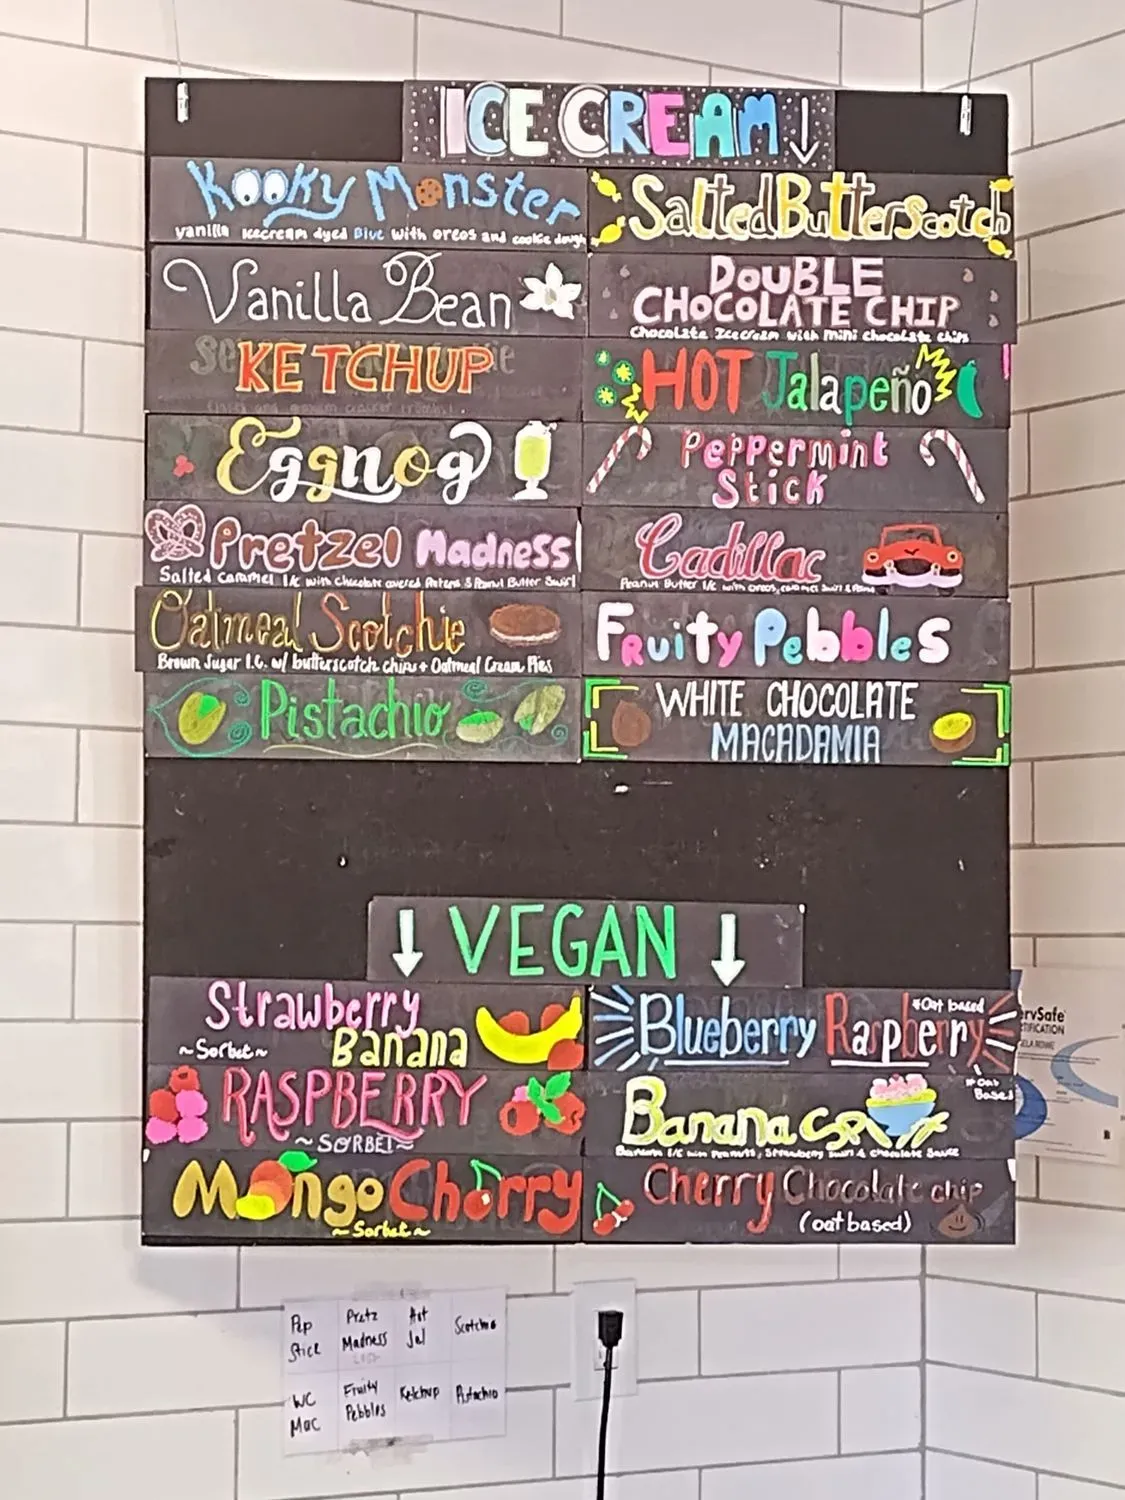 ICE CREAM
Kooky Monster
vanilla icecream dyed Blue with oreos and cookie dough
Salted Butterscotch
Vanilla Bean
DOUBLE
CHOCOLATE CHIP
Chocolate Icecream with mini chocolate chips
KETCHUP
HOT Jalapeño
Eggnog
Peppermint
Stick
Pretzel Madness
Salted Caramel I/C with chocolate covered Pretzels & Peanut Butter Swirl
Cadillac
Peanut Butter I/C with oreos, caramel swirl &
Oatmeal Scotchie
Brown Sugar I.C. w/ butterscotch chips + Oatmeal Cream Pies
Fruity Pebbles
Pistachio
WHITE CHOCOLATE
MACADAMIA
VEGAN
Strawberry
Banana
~Sorbet~
Blueberry Raspberry
*Oat based
RASPBERRY
~SORBET~
Banana
*Oat
Based
Banana I/C with Peanuts, Strawberry Swirl & chocolate sauce
Mango Cherry
~Sorbet~
Cherry Chocolate chip
(oat based)
ervSafe
TIFICATION
Pep
Stick
Pretz
Madness
Hot
Jal
Scotchie
WC
Mac
Fruity
Pebbles
Ketchup
Pistachio